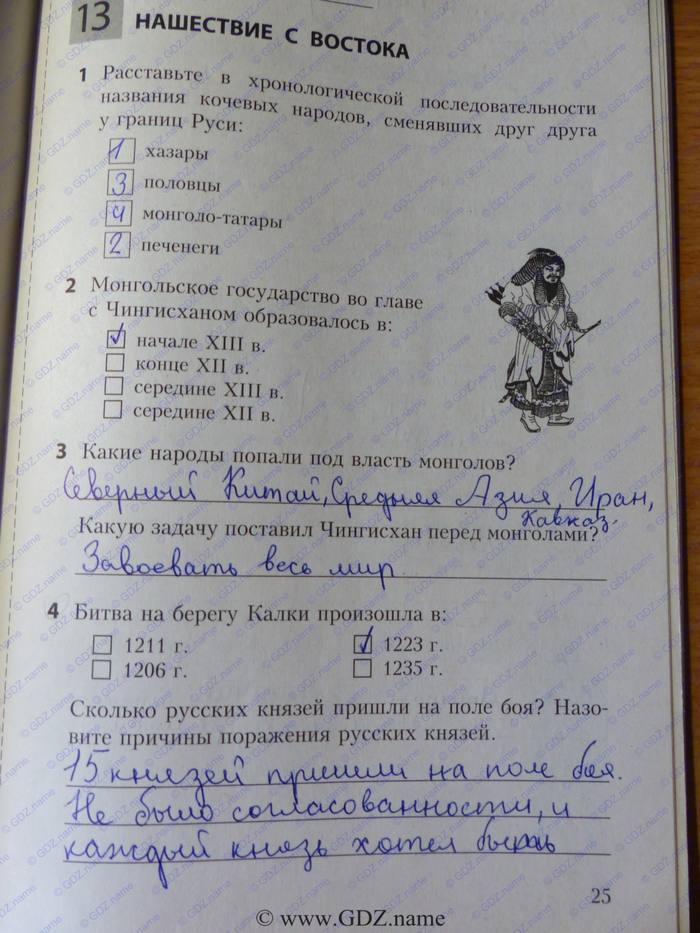 13 НАШЕСТВИЕ С ВОСТОКА
1 Расставьте в хронологической последовательности
названия кочевых народов, сменявших друг друга
у границ Руси:
1 хазары
3 половцы
4 монголо-татары
2 печенеги
2 Монгольское государство во главе
с Чингисханом образовалось в:
✓ начале XIII в.
конце XII в.
середине XIII в.
середине XII в.
3 Какие народы попали под власть монголов?
Северный Китай, Средняя Азия, Иран,
Кавказ.
Какую задачу поставил Чингисхан перед монголами?
Завоевать весь мир
4 Битва на берегу Калки произошла в:
1211 г. ✓ 1223 г.
1206 г. 1235 г.
Сколько русских князей пришли на поле боя? Назо-
вите причины поражения русских князей.
15 князей пришли на поле боя.
Не было согласованности, и
каждый князь хотел
25
© www.GDZ.name